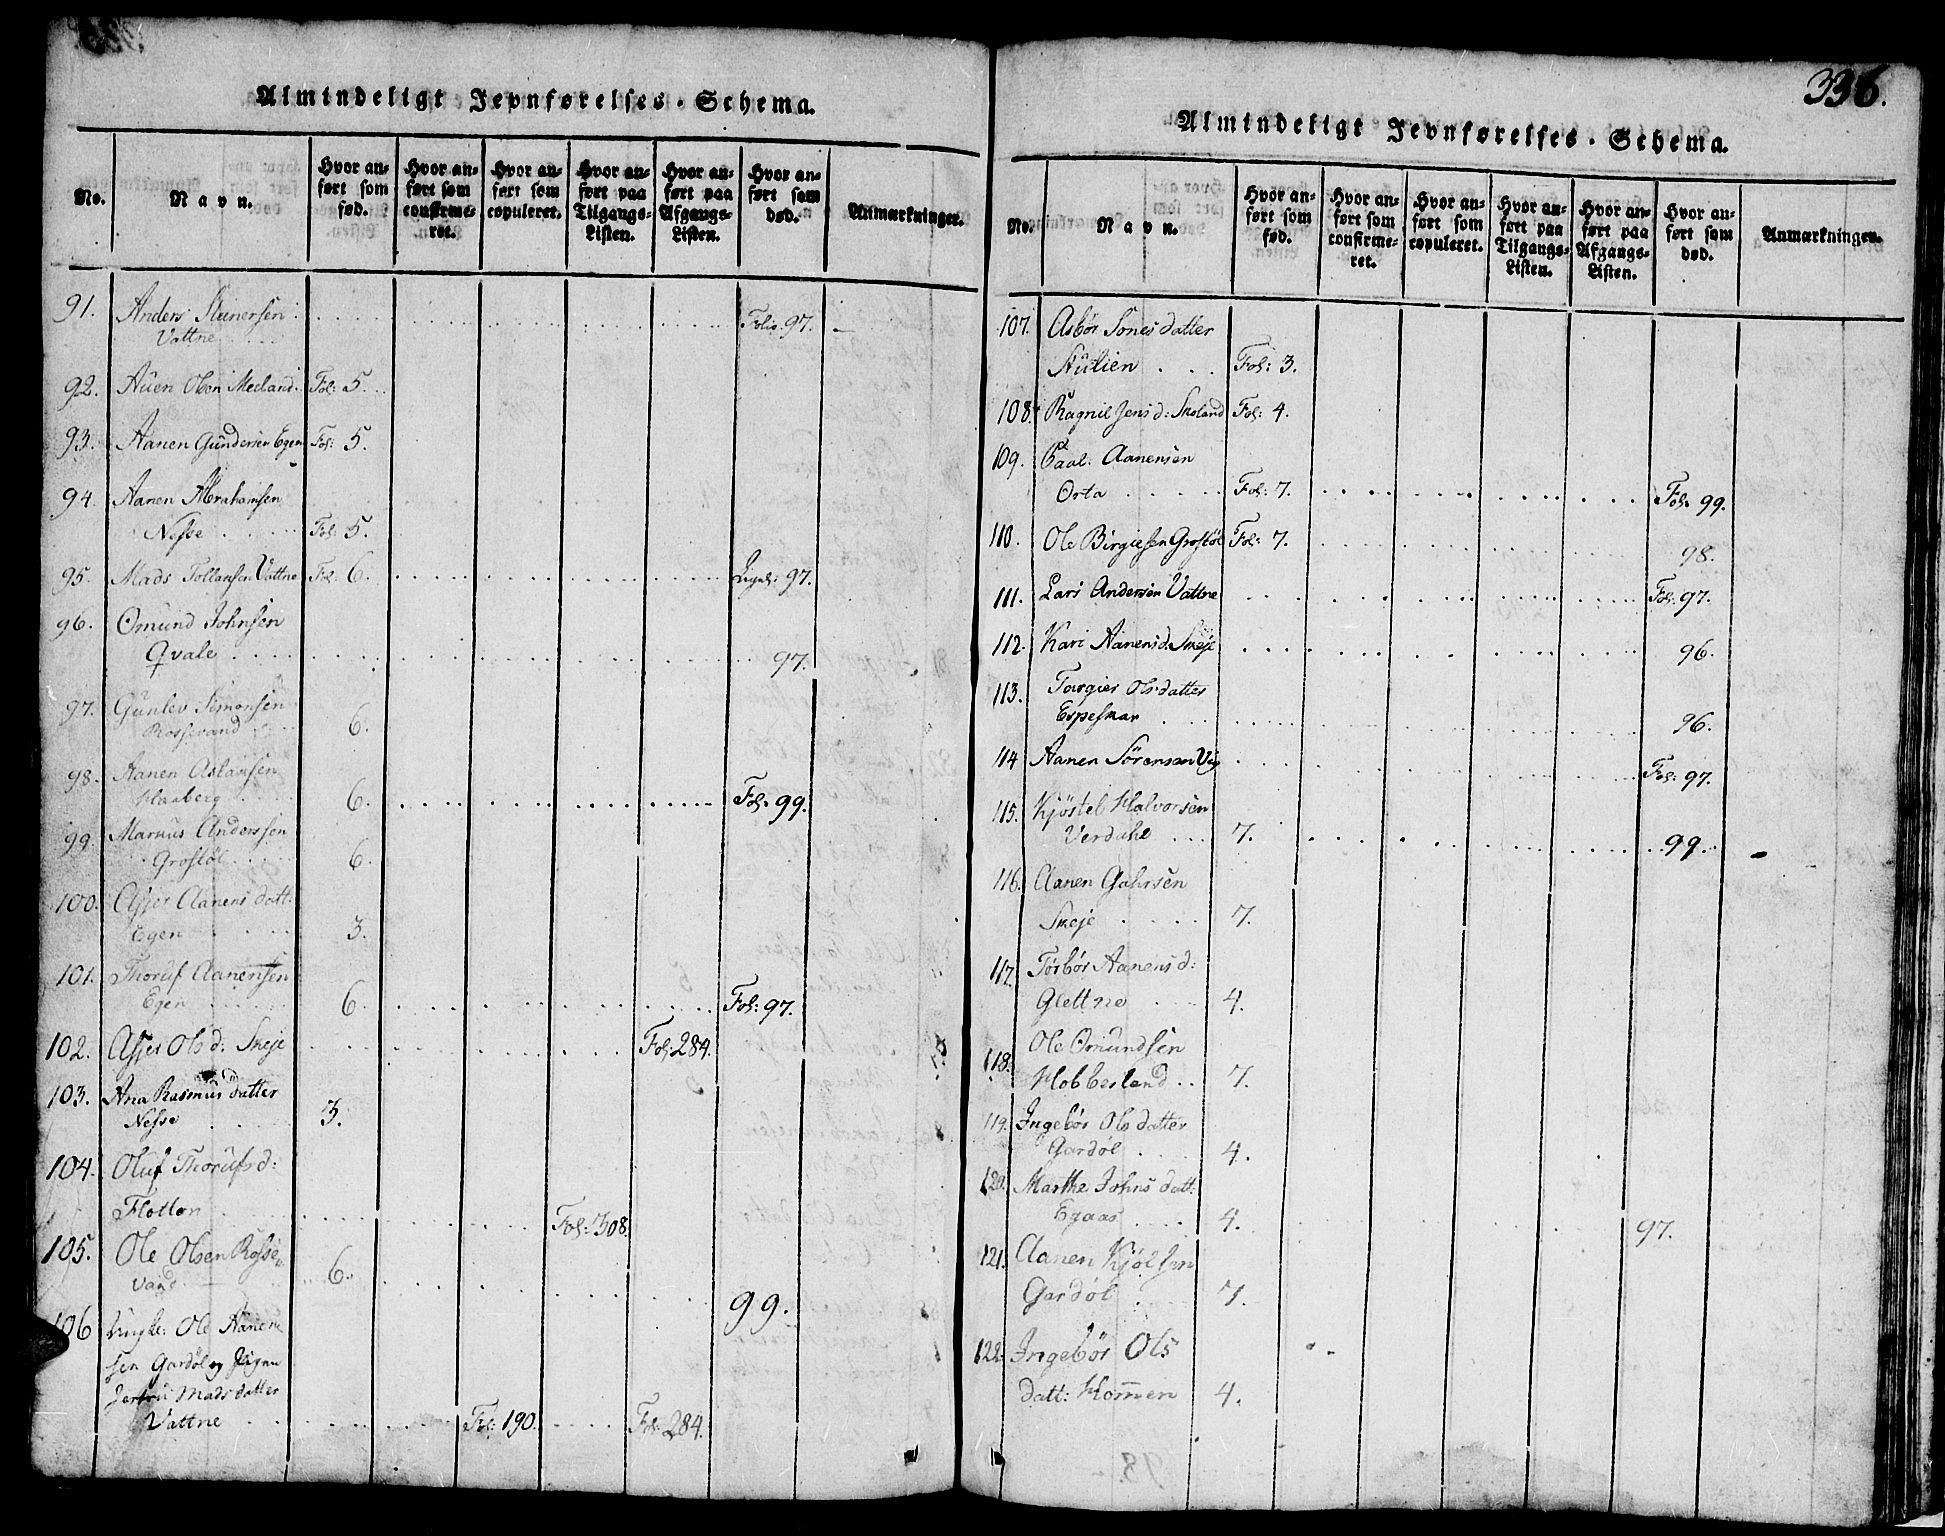 Almindeligt Jevnførelses-Schema.
No.
Navn.
Hvor anført som fød.
Hvor anført som confirmeret.
Hvor anført som copuleret.
Hvor anført paa Tilgangs-Listen.
Hvor anført paa Afgangs-Listen.
Hvor anført som død.
Anmærkninger.
91. Anders Steinersen Folio 97.
Vattne
92. Auen Olsen Meeland Fol: 5.
93. Aanen Gundersen Egen Fol: 5.
94. Aanen Abrahamsen
Nesse Fol: 5.
95. Mads Tollansen Vattne Fol: 6. Ligel: 97.
96. Omund Johnsen
Qvale 97.
97. Gunlev Simonsen
Rossevand 6.
98. Aanen Aslansen
Haaberg 6. Fol: 99.
99. Marcus Anderssen
Grostøl 6.
100. Asjer Aanens datt:
Egen 3.
101. Thoruf Aanensen
Egen 6. Fol: 97.
102. Asjer Ols d: Skeje Fol: 284.
103. Ana Rasmus datter
Nesse 3.
104. Oluf Thorufs d:
Flottor Fol: 308.
105. Ole Olsen Rosse
vand 6. 99.
106 Ole Aanen
sen Gardøl og Pigen
Jertru Mads datter
Vattne Fol: 190. Fol: 284.
336.
Almindeligt Jevnførelses-Schema.
No.
Navn.
Hvor anført som fød.
Hvor anført som confirmeret.
Hvor anført som copuleret.
Hvor anført paa Tilgangs-Listen.
Hvor anført paa Afgangs-Listen.
Hvor anført som død.
Anmærkninger.
107. Asbør Sones datter
Stulien Fol: 3.
108. Ragnil Jens d: Skoland Fol: 4.
109. Paal: Aanensen
Orta Fol: 7. Fol: 99.
110. Ole Birgiesen Grostøl Fol: 7. 98.
111. Lars Andersen Vattne Fol: 97.
112. Kari Aanens d. Skeje 96.
113. Torgier Olsdatter
Espeskar 96.
114 Aanen Sörensen Fol: 97.
115. Kjöstel Halvorsen
Verdahl 7. 99.
116. Aanen Gahrsen
Skeje 7.
117. Torbör Aanens d:
Glettne 4.
118. Ole Omundsen
Hobbesland 7.
119. Ingebör Ols datter
Gardöl 4.
120. Marthe Johns datt:
Egaas 4. 97.
121. Aanen Kjölsen
Gardöl 7.
122. Ingebör Ols
datt: Hommen 4.